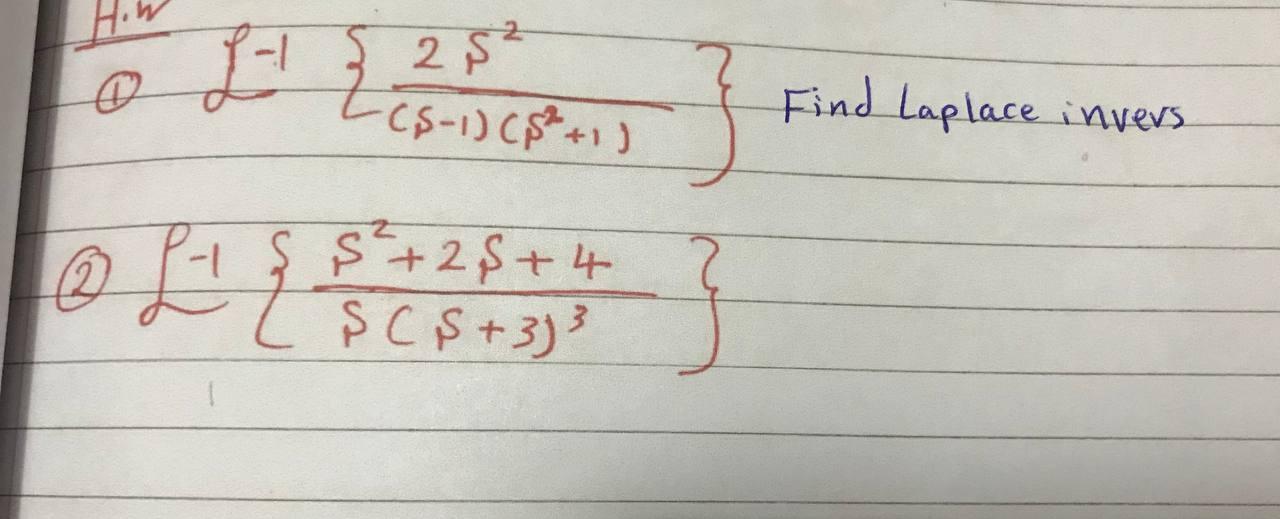 H.W
① ℒ⁻¹ { 2S² / (S-1)(S²+1) } Find Laplace invers
② ℒ⁻¹ { S²+2S+4 / S(S+3)³ }